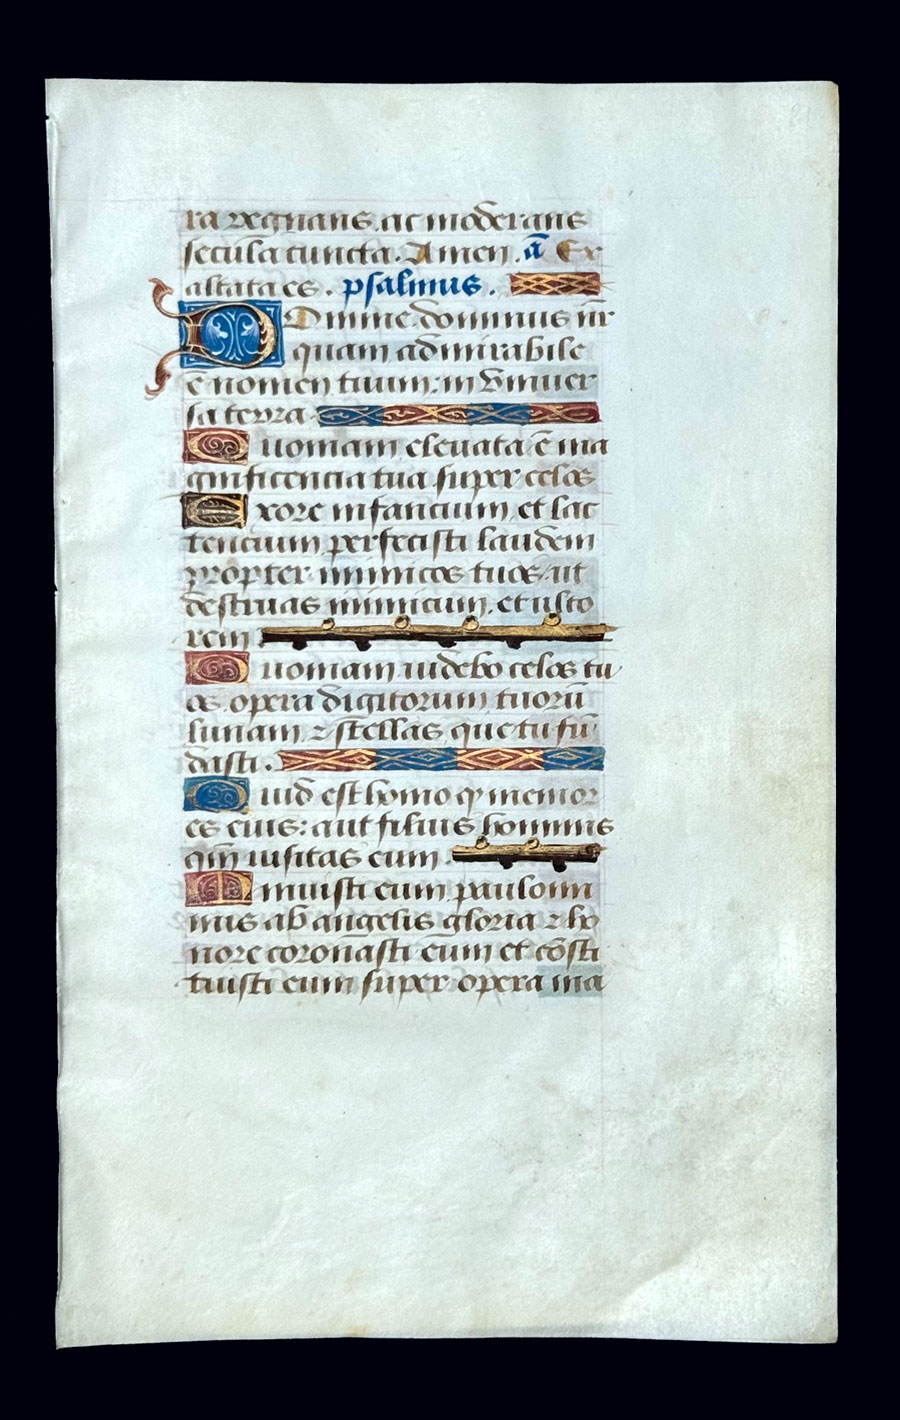 ra regnans ac moderans
secula cuncta. Amen. aᷓ Ex
altata es. psalmus.
Domine dominus n̅r
quam admirabile
e̅ nomen tuum. in vniuer
sa terra.
Quoniam eleuata e̅ ma
gnificencia tua super celos
Ex ore infancium et lac
tencium perfecisti laudem
propter inimicos tuos. ut
destruas inimicum. et ulto
rem
Quoniam uidebo celos tu
os. opera digitorum tuoru̅
lunam ⁊ stellas que tu fu̅
dasti.
Quid est homo qᷓ memor
es eius: aut filius hominis
qm̅ uisitas eum.
Minuisti eum paulomi
nus ab angelis gloria ⁊ ho
nore coronasti eum et co̅sti
tuisti eum super opera ma